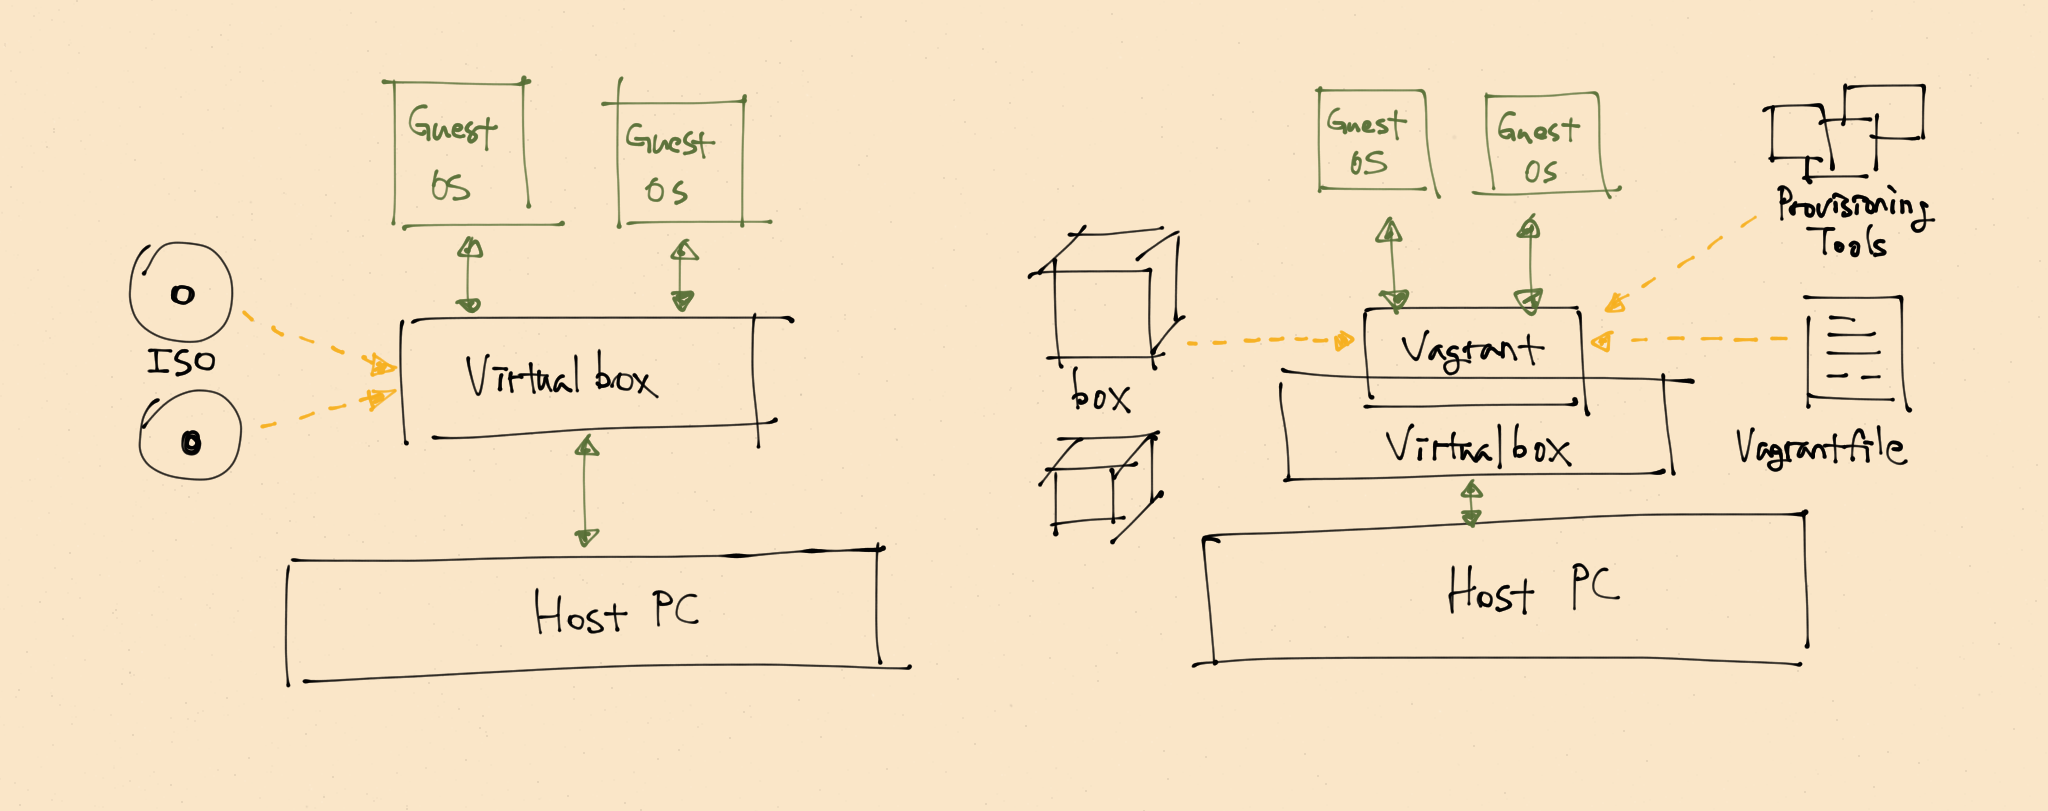 Guest
OS
Guest
OS
ISO
Virtual box
Host PC
Guest
OS
Guest
OS
Provisioning
Tools
box
Vagrant
Virtual box
Vagrantfile
Host PC